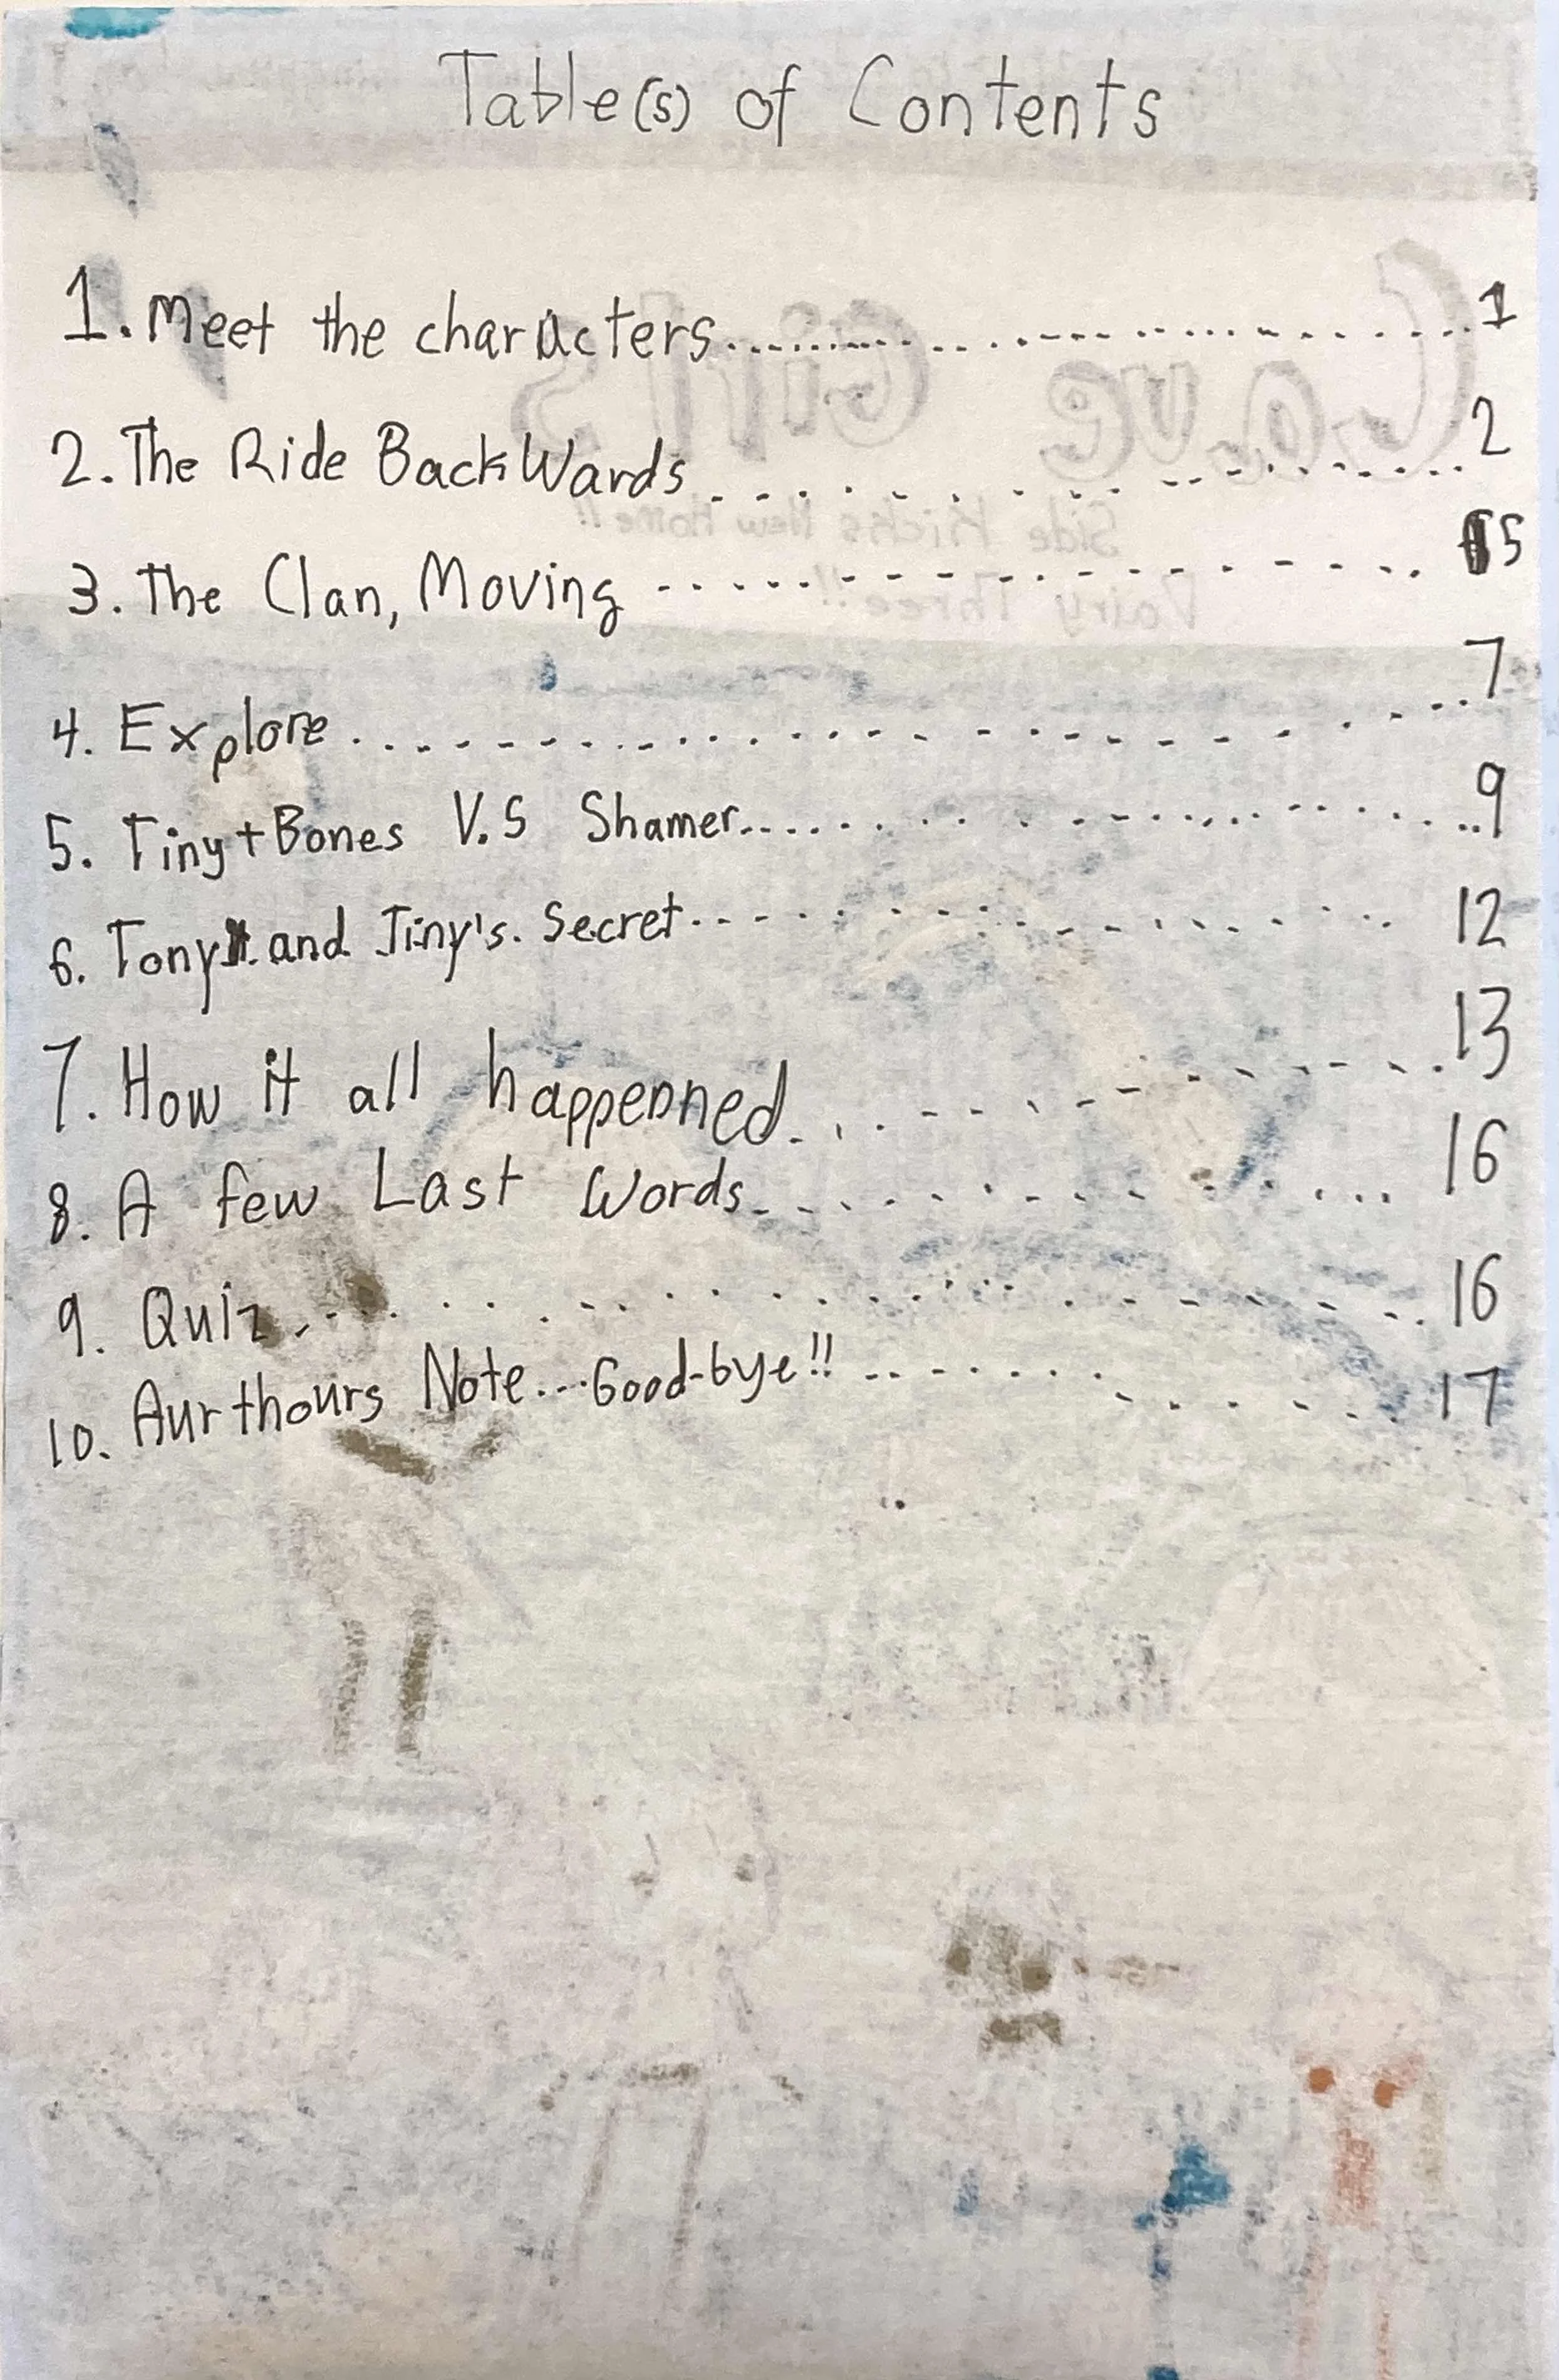 Table(s) of Contents
1. Meet the characters.......................... 1
2. The Ride BackWards................... 2
3. The Clan, Moving .................. 5
4. Explore....................... 7
5. Tiny + Bones V.S Shamer..................... 9
6. Tony and Tiny's. Secret................ 12
7. How it all happenned............. 13
8. A few Last Words............... 16
9. Quiz........................ 16
10. Aurthours Note....Good-bye!! ............. 17
Cave Girls
Side Kicks New Home!!
Dairy Three!!